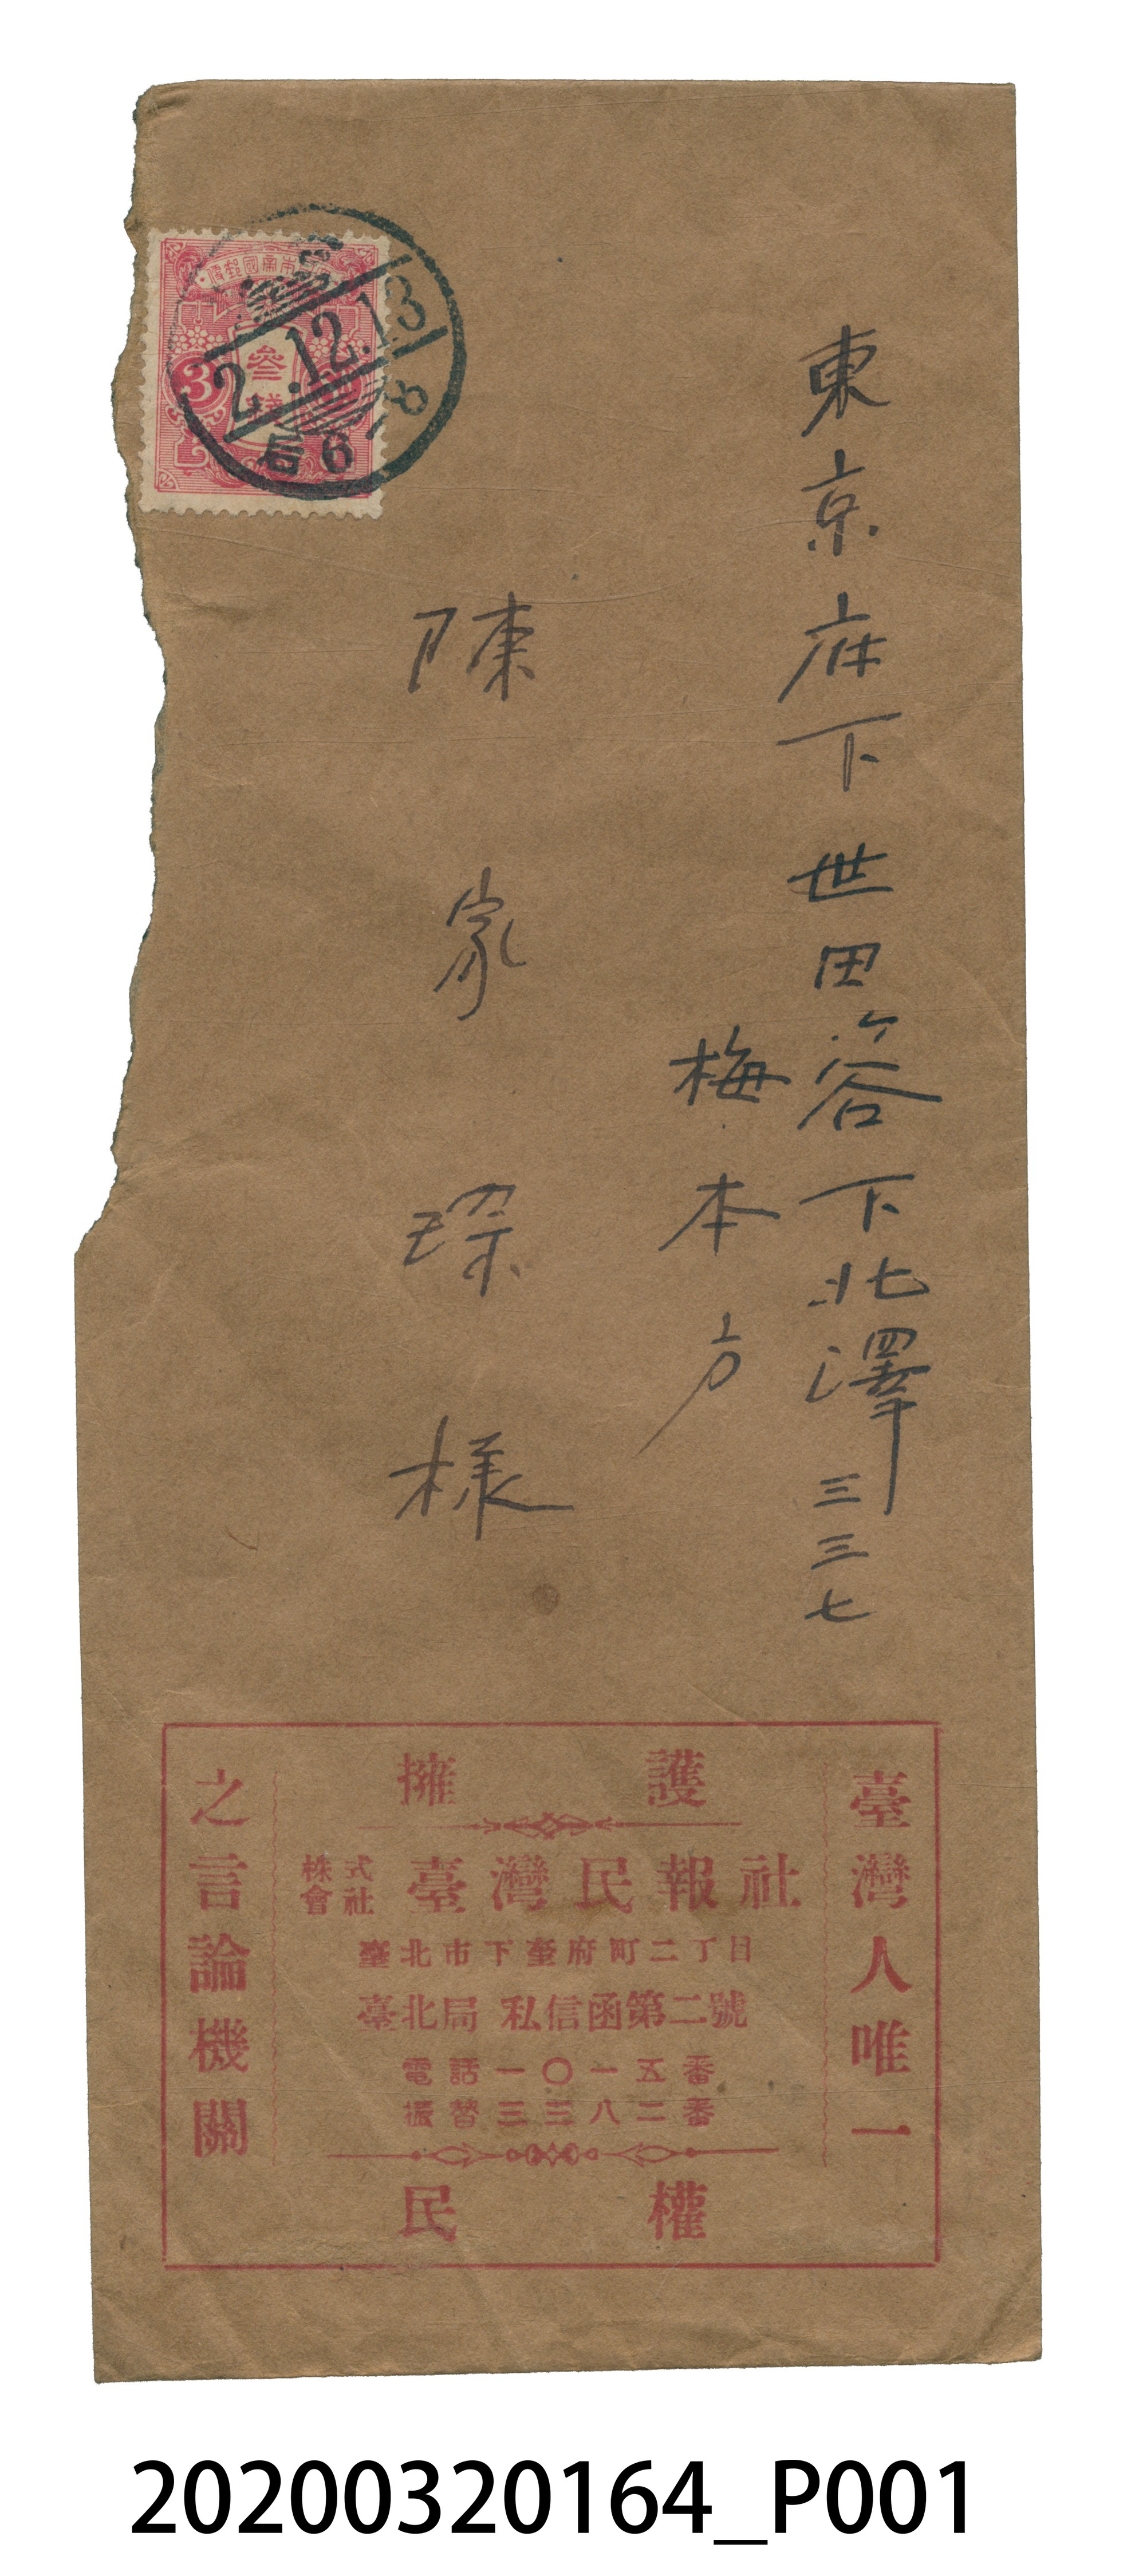 東京府下世田谷下北澤三三七
梅本方
陳家琛様
國帝本
叁錢
3
2.12.13
后6
臺灣人唯一
之言論機關
擁護
株式會社 臺灣民報社
臺北市下奎府町二丁目
臺北局 私信函第二號
電話一〇一五番
振替三三八二番
民權
20200320164_P001